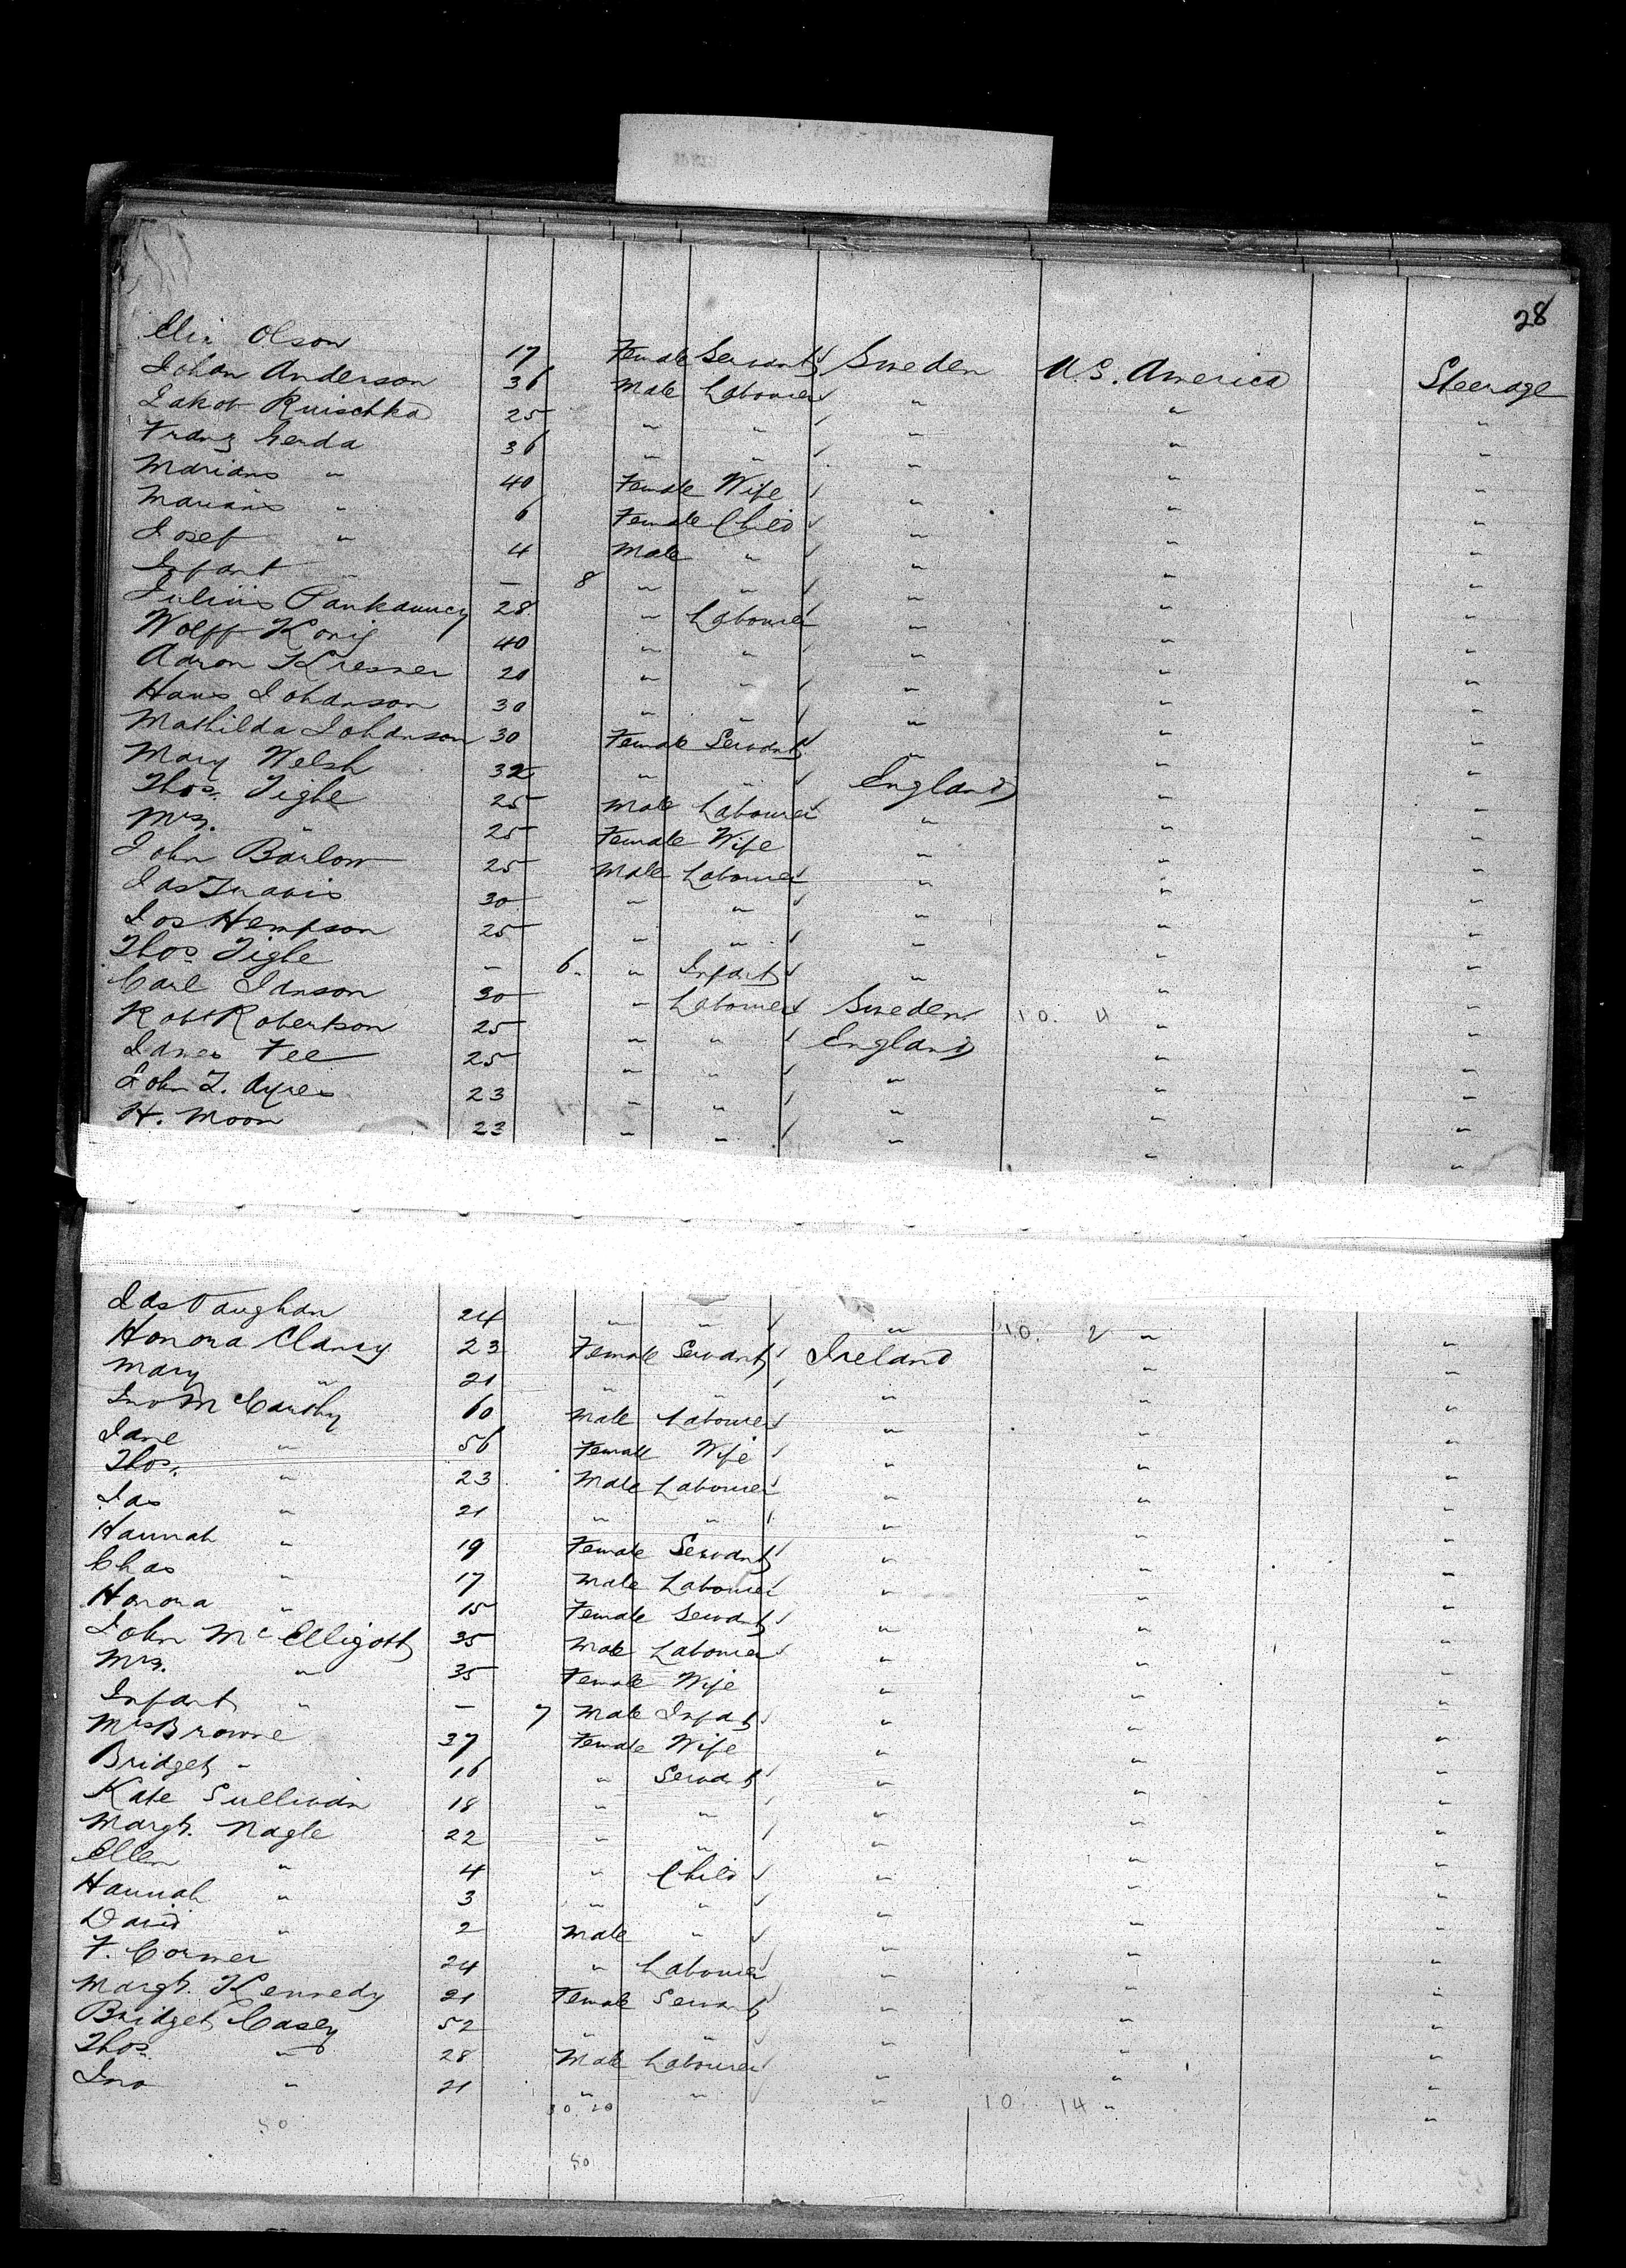 28
Elin Olson 17 Female Servant Sweden U.S. America Steerage
Johan Anderson 36 Male Labourer " " "
Jakob Ruischka 25 " " " " "
Franz Gerda 36 " " " " "
Marians " 40 Female Wife " " "
Marians " 6 Female Child " " "
Josef " 4 Male " " " "
Infant " – 8 " " " " "
Julius 28 " Labourer " " "
Wolff Konig 40 " " " " "
Aaron Kresner 20 " " " " "
Hans Johanson 30 " " " " "
Mathilda Johanson 30 Female Servant " " "
Mary Welsh 32 " " England " "
Thos. Tighe 25 Male Labourer " " "
Mrs. " 25 Female Wife " " "
John Barlow 25 Male Labourer " " "
Jas Travis 30 " " " " "
Jos Hempson 25 " " " " "
Thos Tighe – 6 " Infant " " "
Carl Janson 30 " Labourer Sweden 10. 4 " "
Robt Robertson 25 " " England " "
James Fee 25 " " " " "
John T. Ayres 23 " " " " "
H. Moon 23 " " " " "
Jas Vaughan 24 " " " 10. 2 " "
Honora Clancy 23 Female Servant Ireland " "
Mary " 21 " " " " "
Jno McCarthy 60 Male Labourer " " "
Jane " 56 Female Wife " " "
Thos. " 23 Male Labourer " " "
Jas " 21 " " " " "
Hannah " 19 Female Servant " " "
Chas " 17 Male Labourer " " "
Honora " 15 Female Servant " " "
John McElligott 35 Male Labourer " " "
Mrs. " 35 Female Wife " " "
Infant " – 7 Male Infant " " "
Mrs Browne 37 Female Wife " " "
Bridget " 16 " Servant " " "
Kate Sullivan 18 " " " " "
Margt. Nagle 22 " " " " "
Ellen " 4 " Child " " "
Hannah " 3 " " " " "
David " 2 Male " " " "
F. Corner 24 " Labourer " " "
Margt. Kennedy 21 Female Servant " " "
Bridget Casey 52 " " " " "
Thos. " 28 Male Labourer " " "
Jno " 21 " " " 10. 14 " "
50 30 20
50